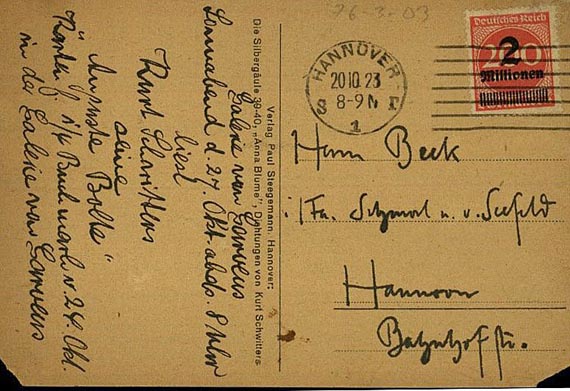 76-3-03
Deutsches Reich
200
2
Millionen
HANNOVER
20.10.23
8-9 N
1
Verlag Paul Steegemann, Hannover:
Die Silbergäule 39-40, „Anna Blume", Dichtungen von Kurt Schwitters
Galerie von Garvens
Sonnabend d. 27. Okt. abds. 8 Uhr
liest
Kurt Schwitters
seine
Auguste Bolte"
Karten v. 24. Okt.
in der Galerie von Garvens
Herrn Beck
i/Fa. u. v. Seefeld
Hannover
Bahnhofstr.